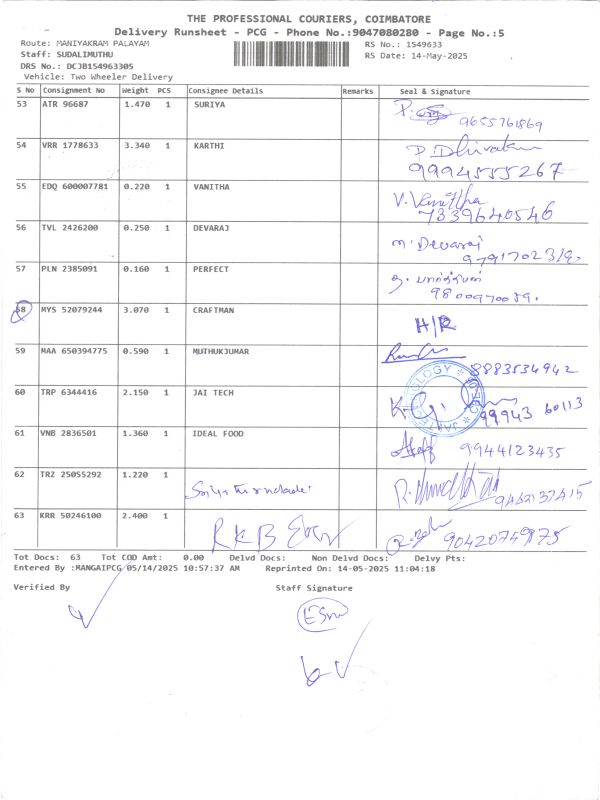 THE PROFESSIONAL COURIERS, COIMBATORE
Delivery Runsheet - PCG - Phone No.:9047080280 - Page No.:5
Route: MANIYAKRAM PALAYAM RS No.: 1549633
Staff: SUDALIMUTHU RS Date: 14-May-2025
DRS No.: DCJB154963305
Vehicle: Two Wheeler Delivery
S No Consignment No Weight PCS Consignee Details Remarks Seal & Signature
53 ATR 96687 1.470 1 SURIYA P.
9655761869
54 VRR 1778633 3.340 1 KARTHI P. Dhivakar
9994555267
55 EDQ 600007781 0.220 1 VANITHA V. Vanitha
7339640546
56 TVL 2426200 0.250 1 DEVARAJ M. Devaraj
57 PLN 2385091 0.160 1 PERFECT
58 MYS 52079244 3.070 1 CRAFTMAN H/R
59 MAA 650394775 0.590 1 MUTHUKUMAR
8883534942
60 TRP 6344416 2.150 1 JAI TECH
99943 60113
61 VNB 2836501 1.360 1 IDEAL FOOD
9944123435
62 TRZ 25055292 1.220 1
63 KRR 50246100 2.400 1 RKB
Tot Docs: 63 Tot COD Amt: 0.00 Delvd Docs: Non Delvd Docs: Delvy Pts:
Entered By :MANGAIPCG 05/14/2025 10:57:37 AM Reprinted On: 14-05-2025 11:04:18
Verified By Staff Signature